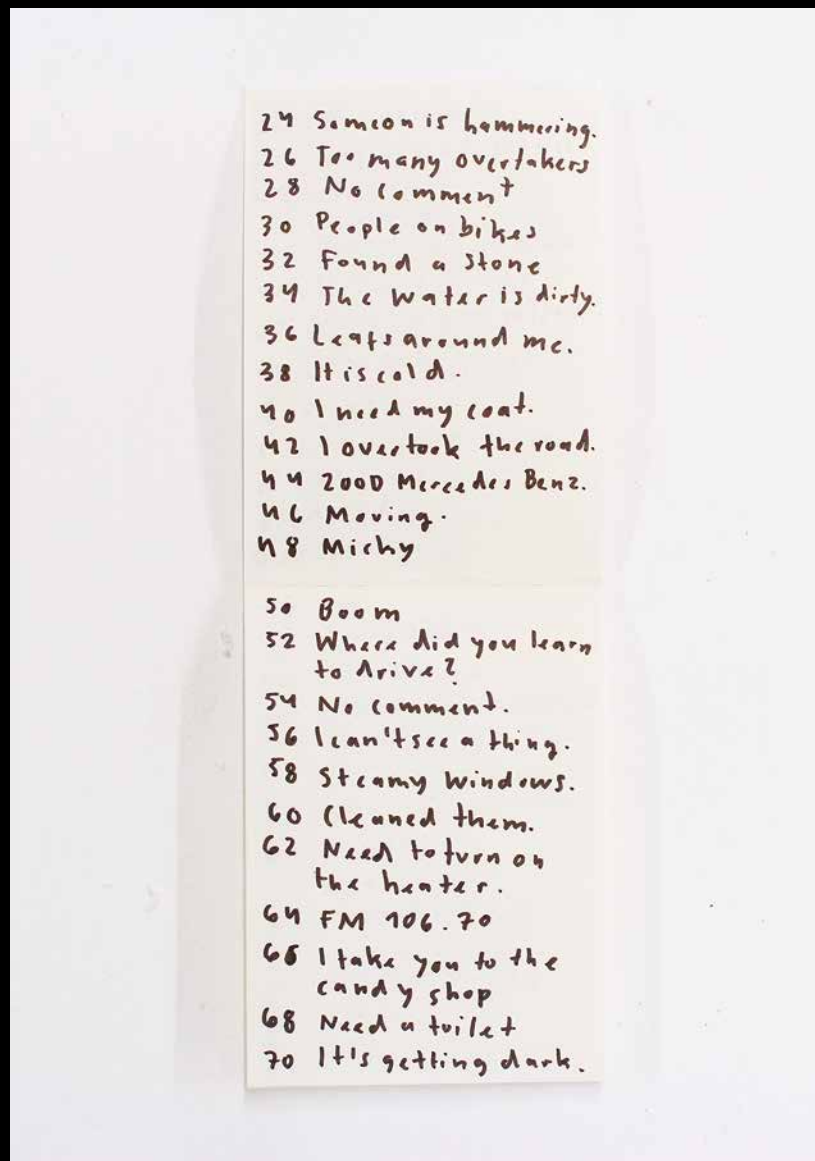 24 Someon is hammering.
26 Too many overtakers
28 No comment
30 People on bikes
32 Found a stone
34 The water is dirty.
36 Leafs around me.
38 It is cold.
40 I need my coat.
42 I overtook the road.
44 200D Mercedes Benz.
46 Moving.
48 Micky
50 Boom
52 Where did you learn
to drive?
54 No comment.
56 I can't see a thing.
58 Steamy windows.
60 Cleaned them.
62 Need to turn on
the heater.
64 FM 106.70
66 I take you to the
candy shop
68 Need a toilet
70 It's getting dark.